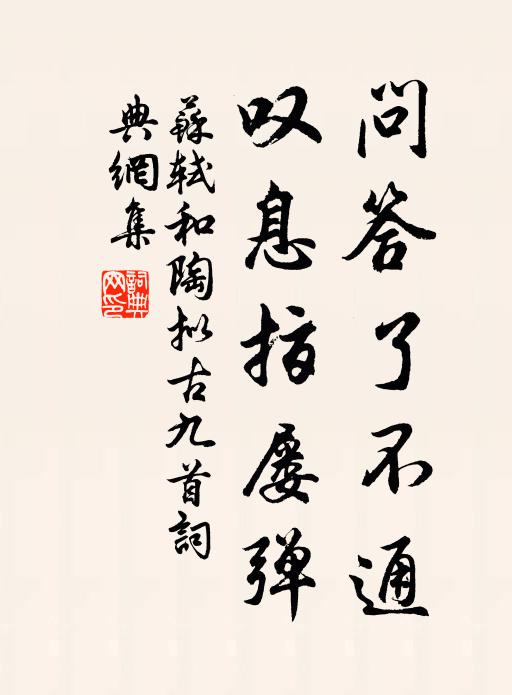 问答了不通
叹息指屡弹
蘇軾和陶拟古九首詞
典網集
詞典网印